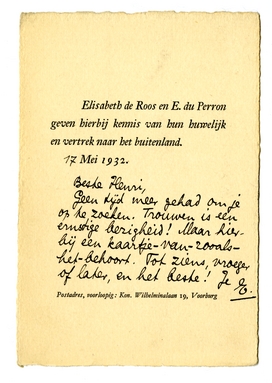 Elisabeth de Roos en E. du Perron
geven hierbij kennis van hun huwelijk
en vertrek naar het buitenland.
17 Mei 1932.
Beste Henri,
Geen tijd meer gehad om je
op te zoeken. Trouwen is een
ernstige bezigheid! Maar hier-
bij een kaartje-van-zooals-
het-behoort. Tot ziens, vroeger
of later, en het beste! Je E.
Postadres, voorloopig: Kon. Wilhelminalaan 19, Voorburg